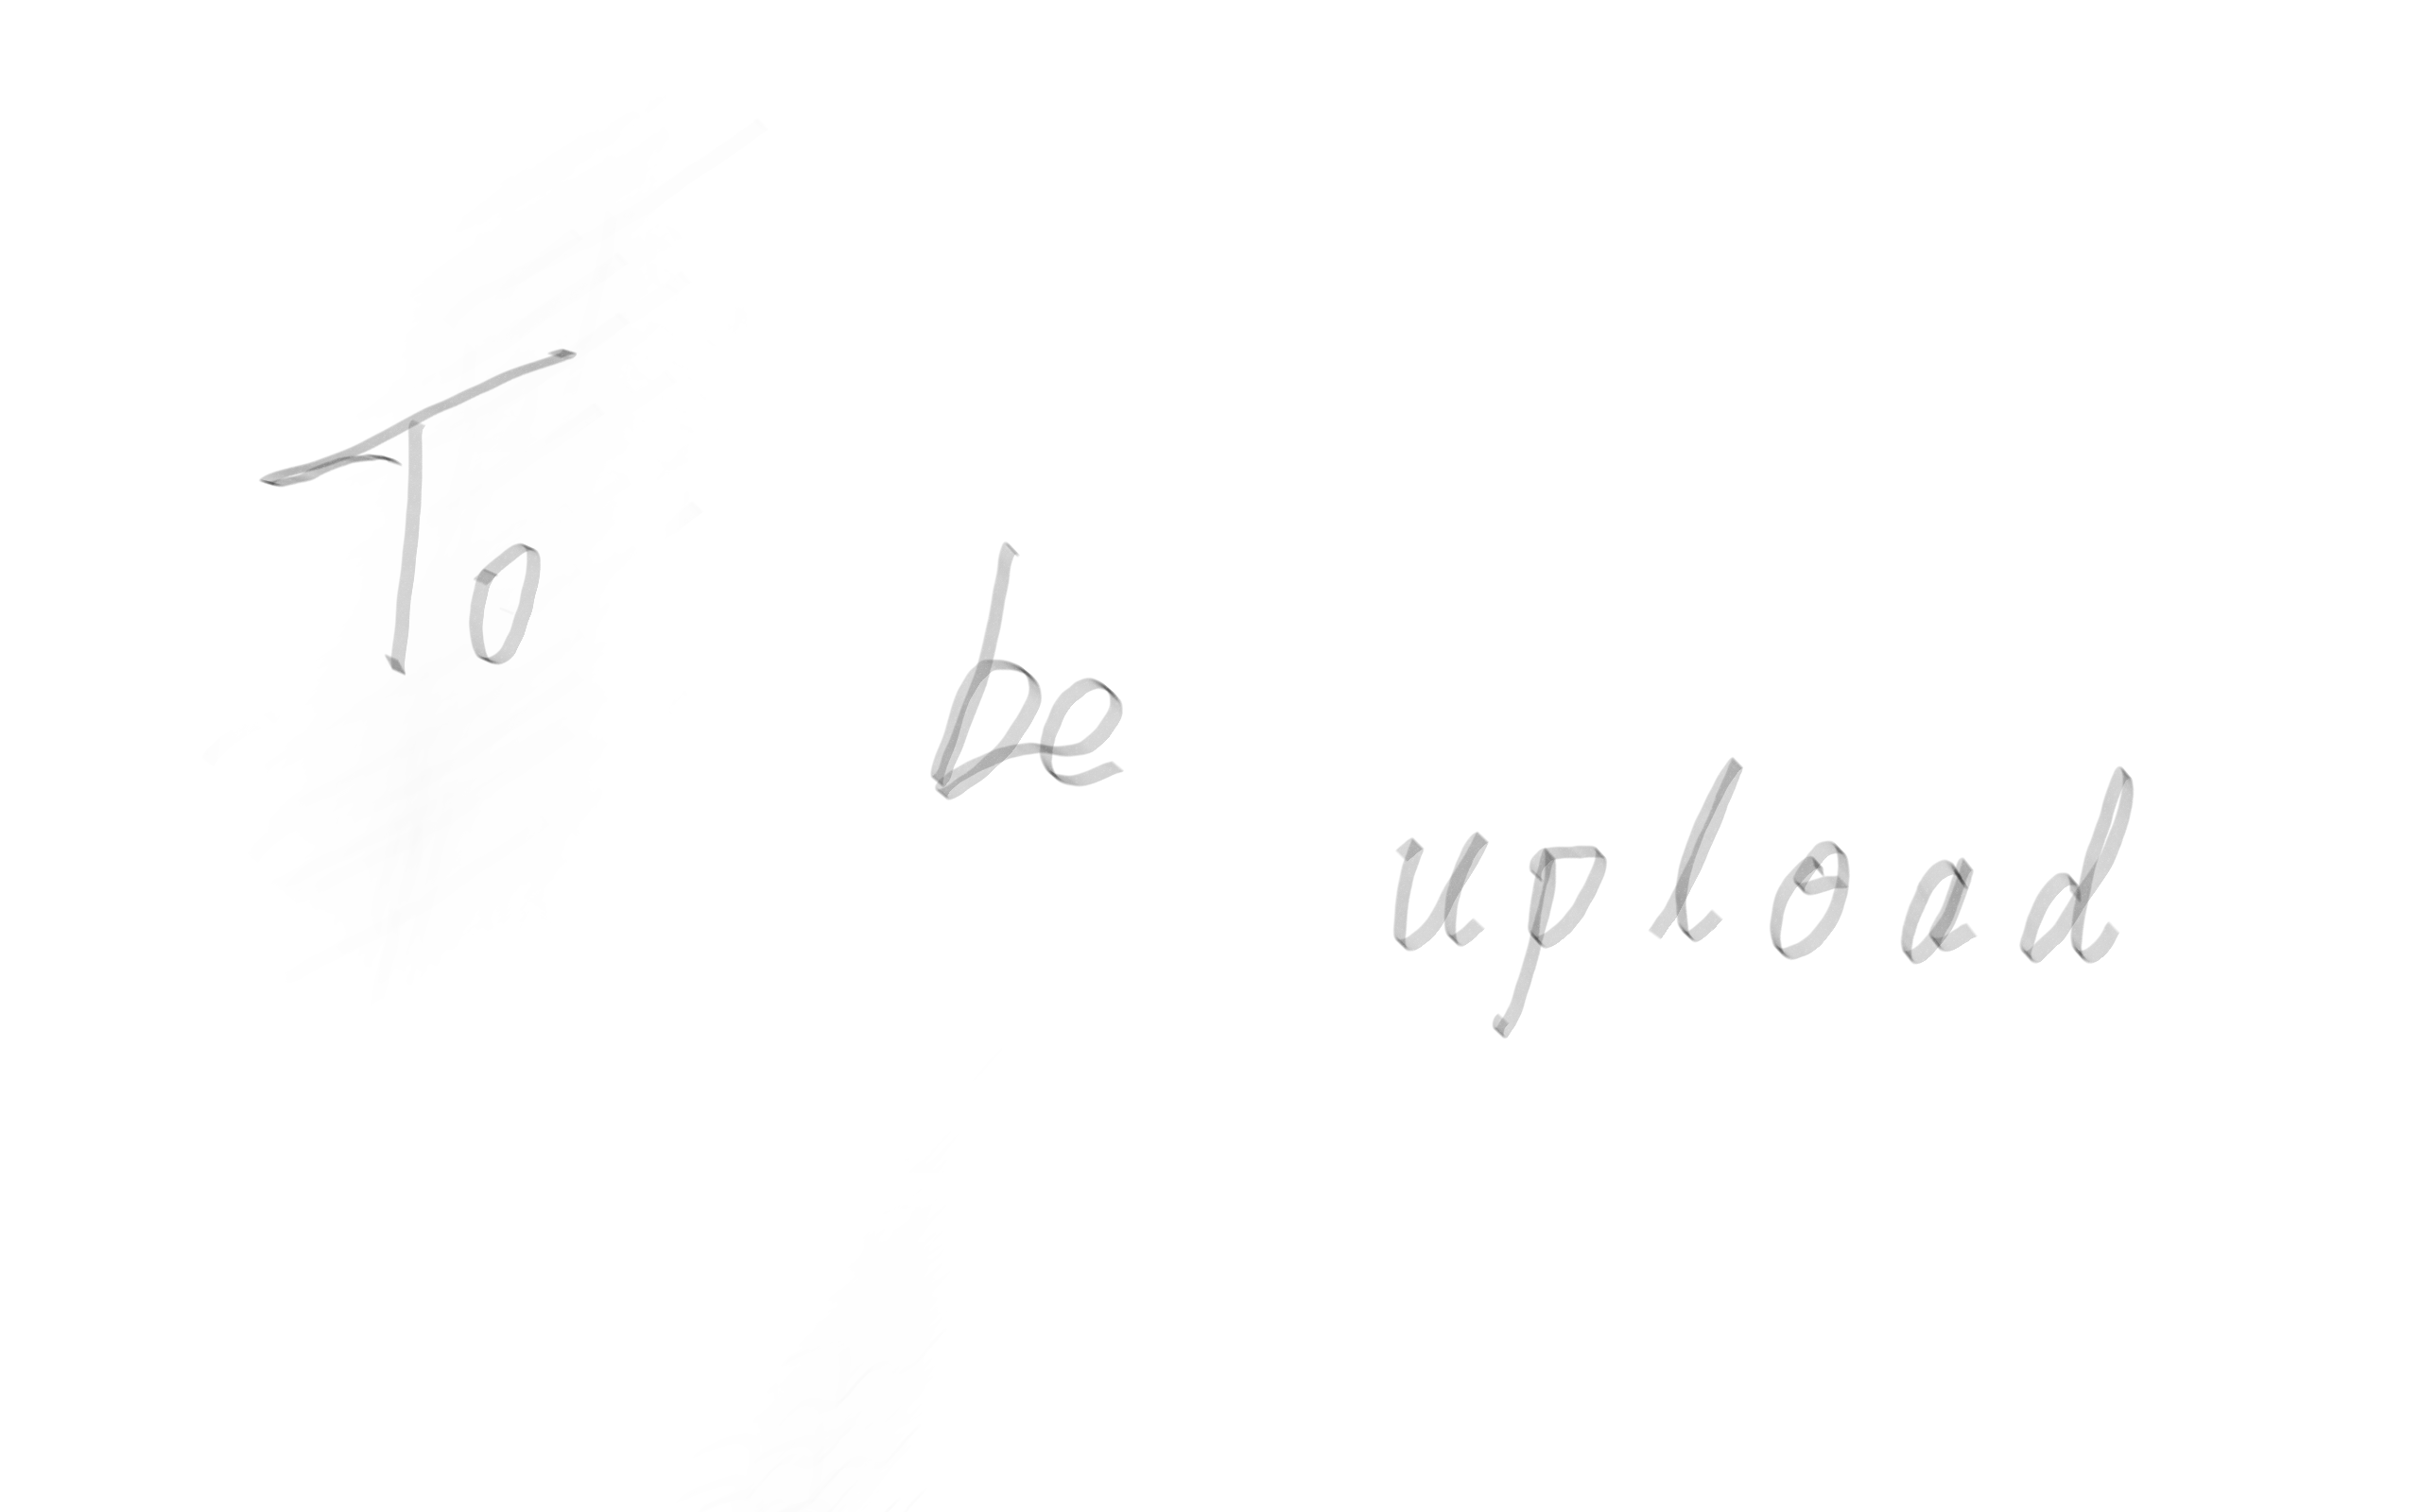 To be upload